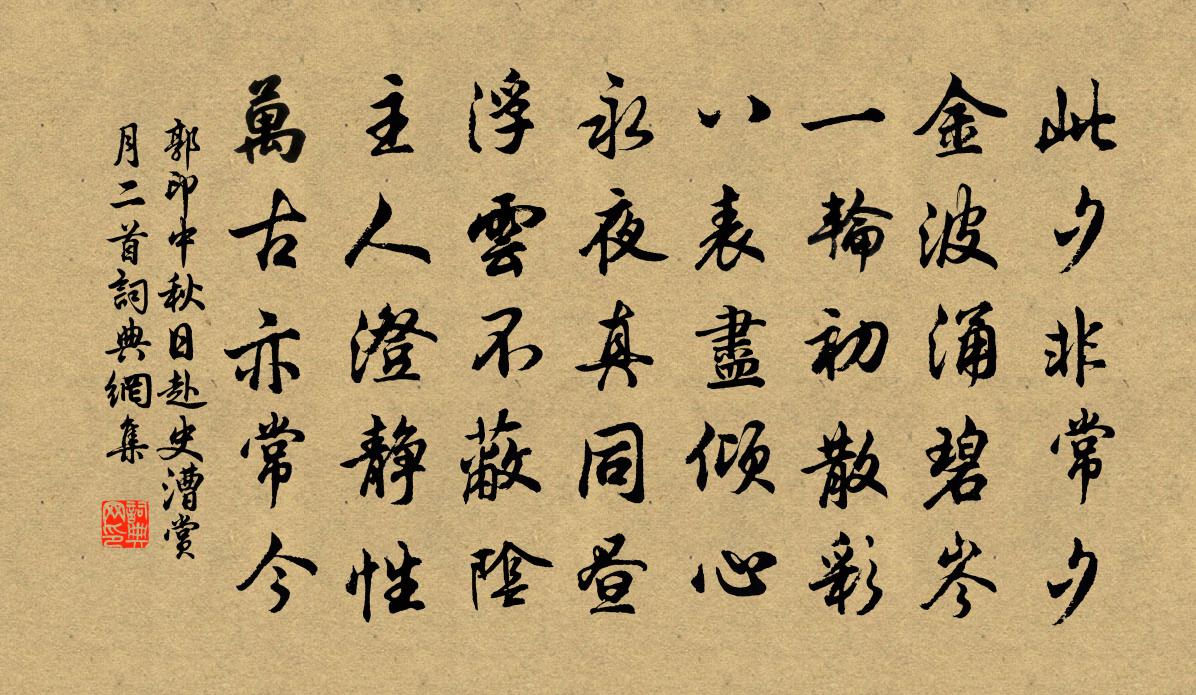 此夕非常夕
金波涌碧岑
一輪初散彩
八表盡傾心
永夜真同晝
浮雲不蔽陰
主人澄靜性
萬古亦常今
郭印中秋日赴史漕賞
月二首詞典網集
詞典
网印